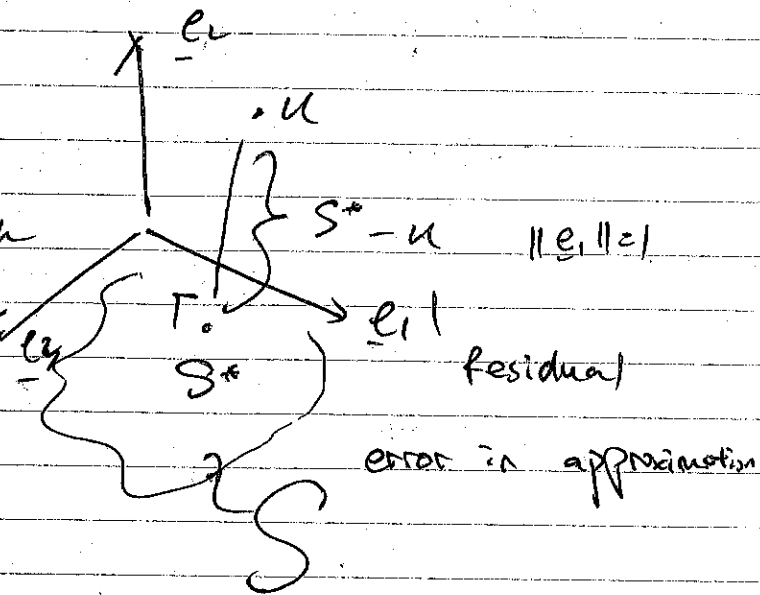 e₂
.u
S* - u ||e₁||=1
e₁
S*
Residual
error in approximation
S